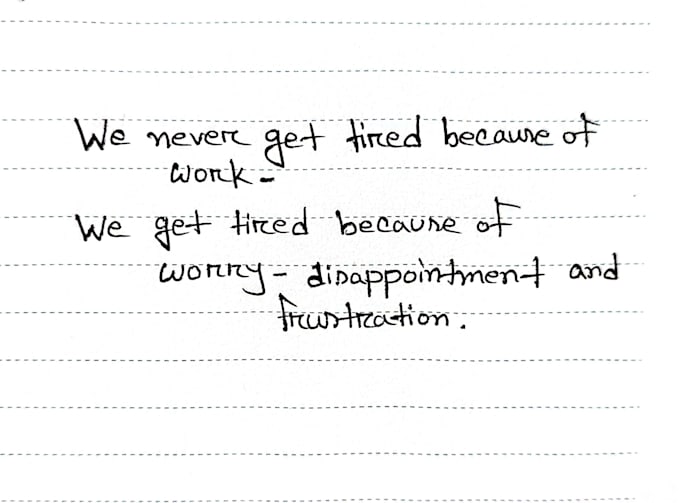 We never get tired because of
work-
We get tired because of
worry- disappointment and
frustration.